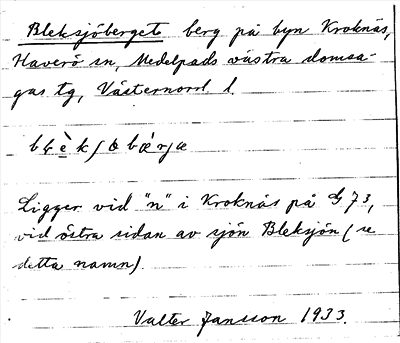 Bleksjöberget berg på byn Kroknäs,
Haverö sn, Medelpads västra domsa-
gas tg, Västernorrl l.
Ligger vid "n" i Kroknäs på G 73,
vid östra sidan av sjön Bleksjön (se
detta namn).
Valter Jansson 1933.